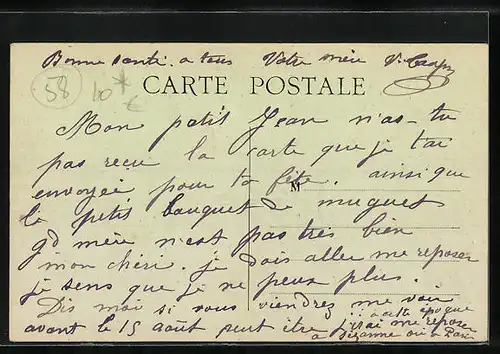 Bonne santé. a tous Votre mère
58
10*
€
CARTE POSTALE
Mon petit Jean n'as-tu
pas reçu la carte que je t'ai
envoyée pour ta fête. ainsi que
M
le petit bouquet de muguet
gd mère n'est pas très bien
mon chéri. je dois aller me reposer
je sens que je ne peux plus.
Dis moi si vous viendrez me voir
avant le 15 aout peut être
à cette époque
j'irai me reposer
ou à Paris